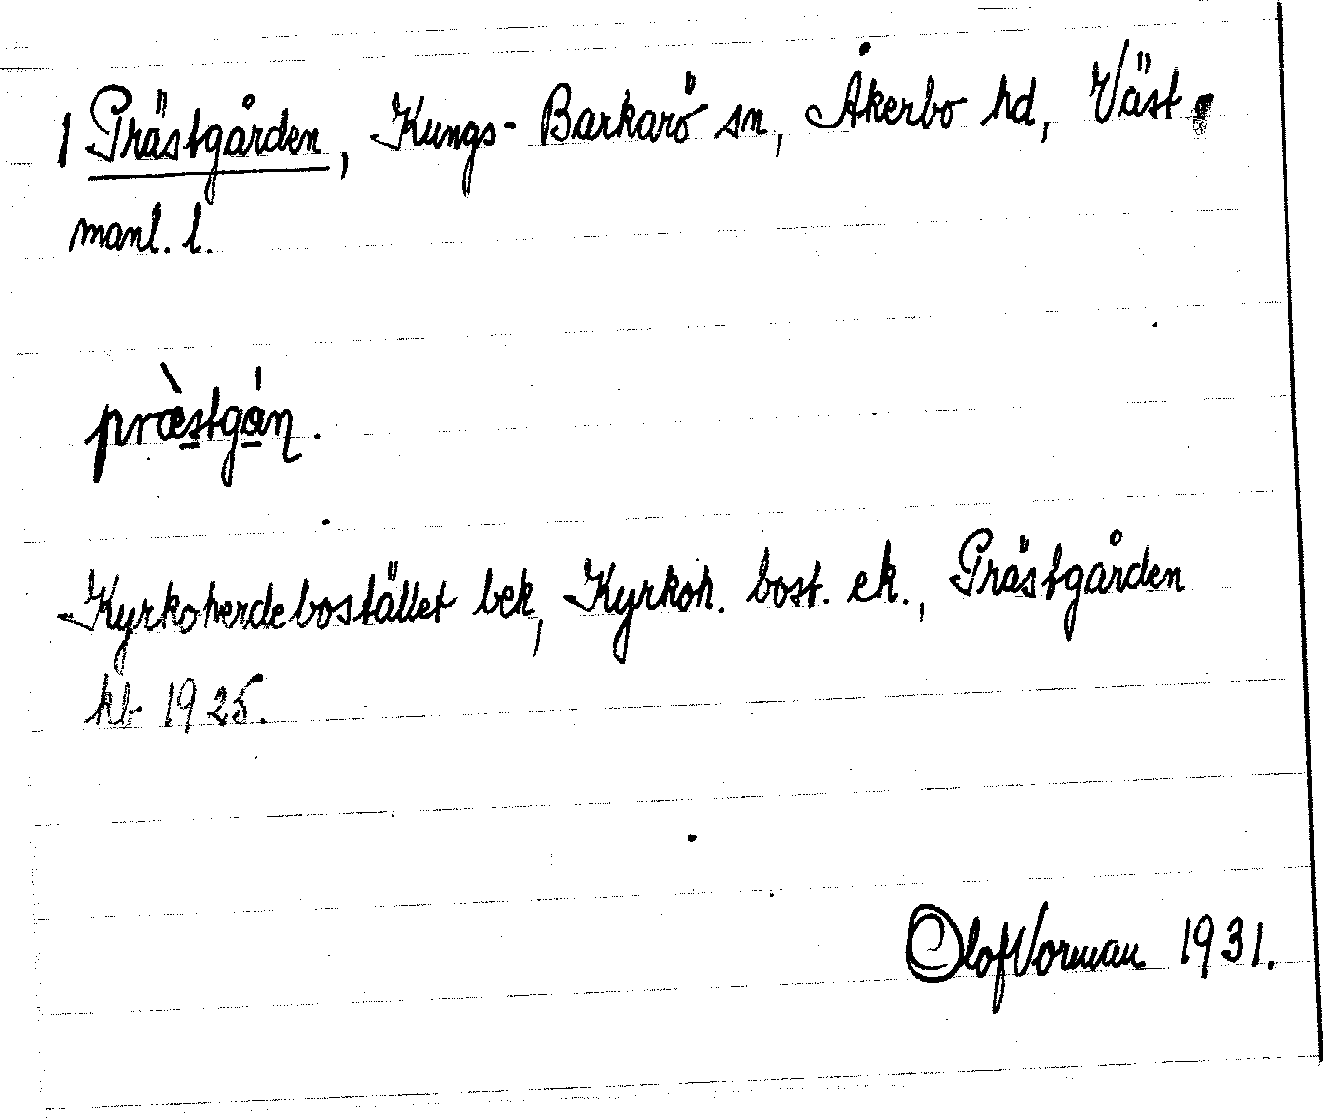 1 Prästgården, Kungs-Barkarö sn, Åkerbo hd, Väst-
manl. l.
præ̀stgán.
Kyrkoherdebostället bek, Kyrkoh. bost. ek., Prästgården
kb 1925.
Olof Vorman 1931.